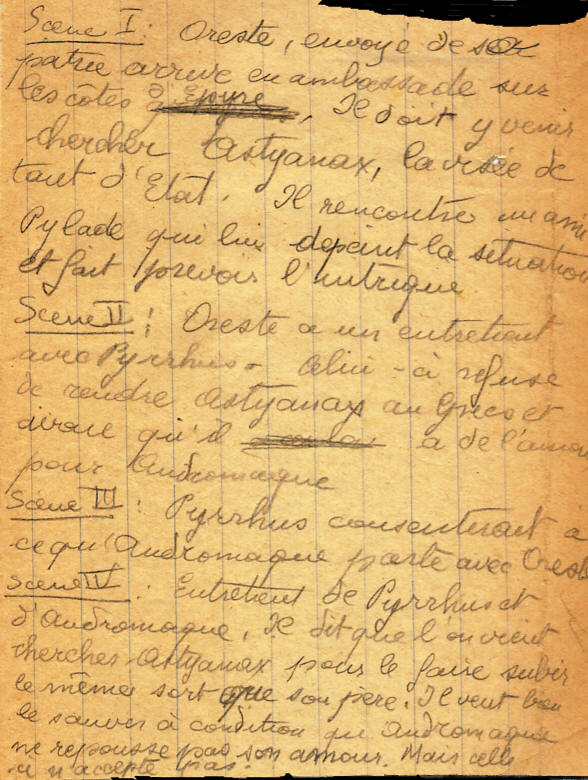 Scène I : Oreste, envoyé de son
patrie arrive en ambassade sur
les côtes d'Epyre, Il doit y venir
chercher Astyanax, la visée de
tout d'Etat. Il rencontre un ami
Pylade qui lui depeint la situation
et fait prevoir l'intrigue.
Scene II : Oreste a un entretient
avec Pyrrhus. Celui-ci refuse
de rendre Astyanax au Grecs et
avoue qu'il a de l'amour
pour Andromaque
Scène III : Pyrrhus consentirait a
ce qu'Andromaque parte avec Oreste
Scene IV : Entretient de Pyrrhus et
d'Andromaque, Il dit que l'on vient
chercher Astyanax pour le faire subir
le même sort que son père. Il veut bien
le sauver à condition qu'Andromaque
ne repousse pas son amour. Mais celle
-ci n'accepte pas.